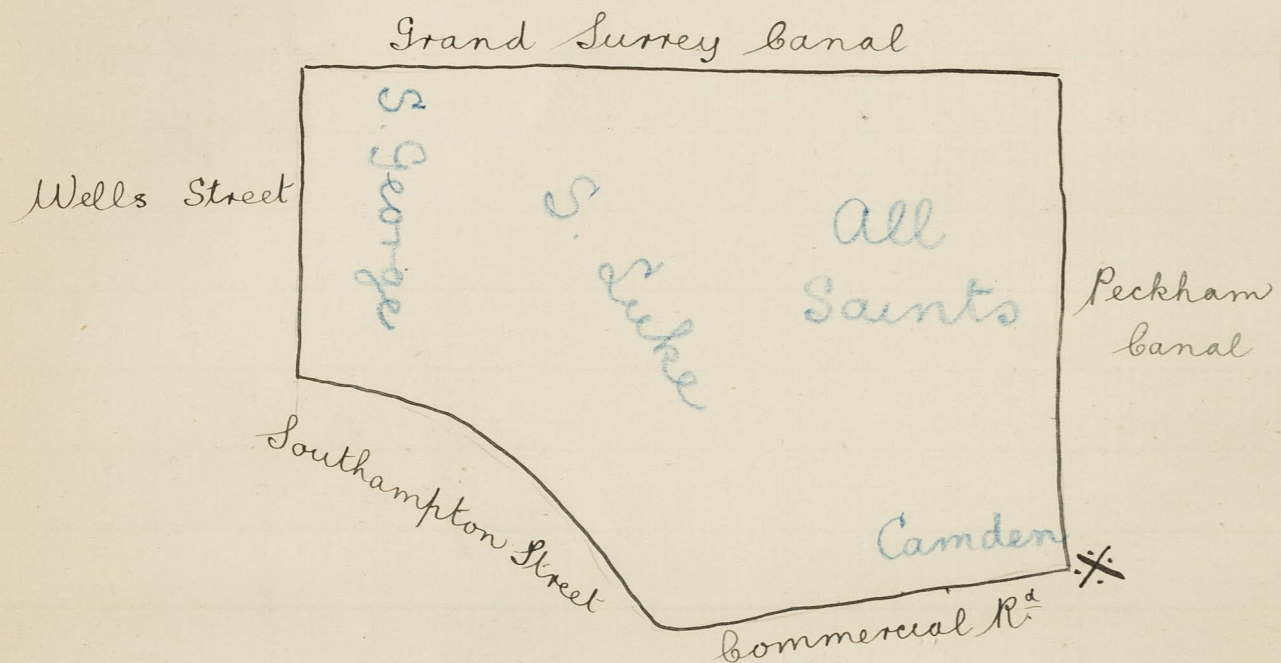 Grand Surrey Canal
Wells Street
S. George
S. Luke
All
Saints
Peckham
Canal
Southampton Street
Camden
Commercial Rd